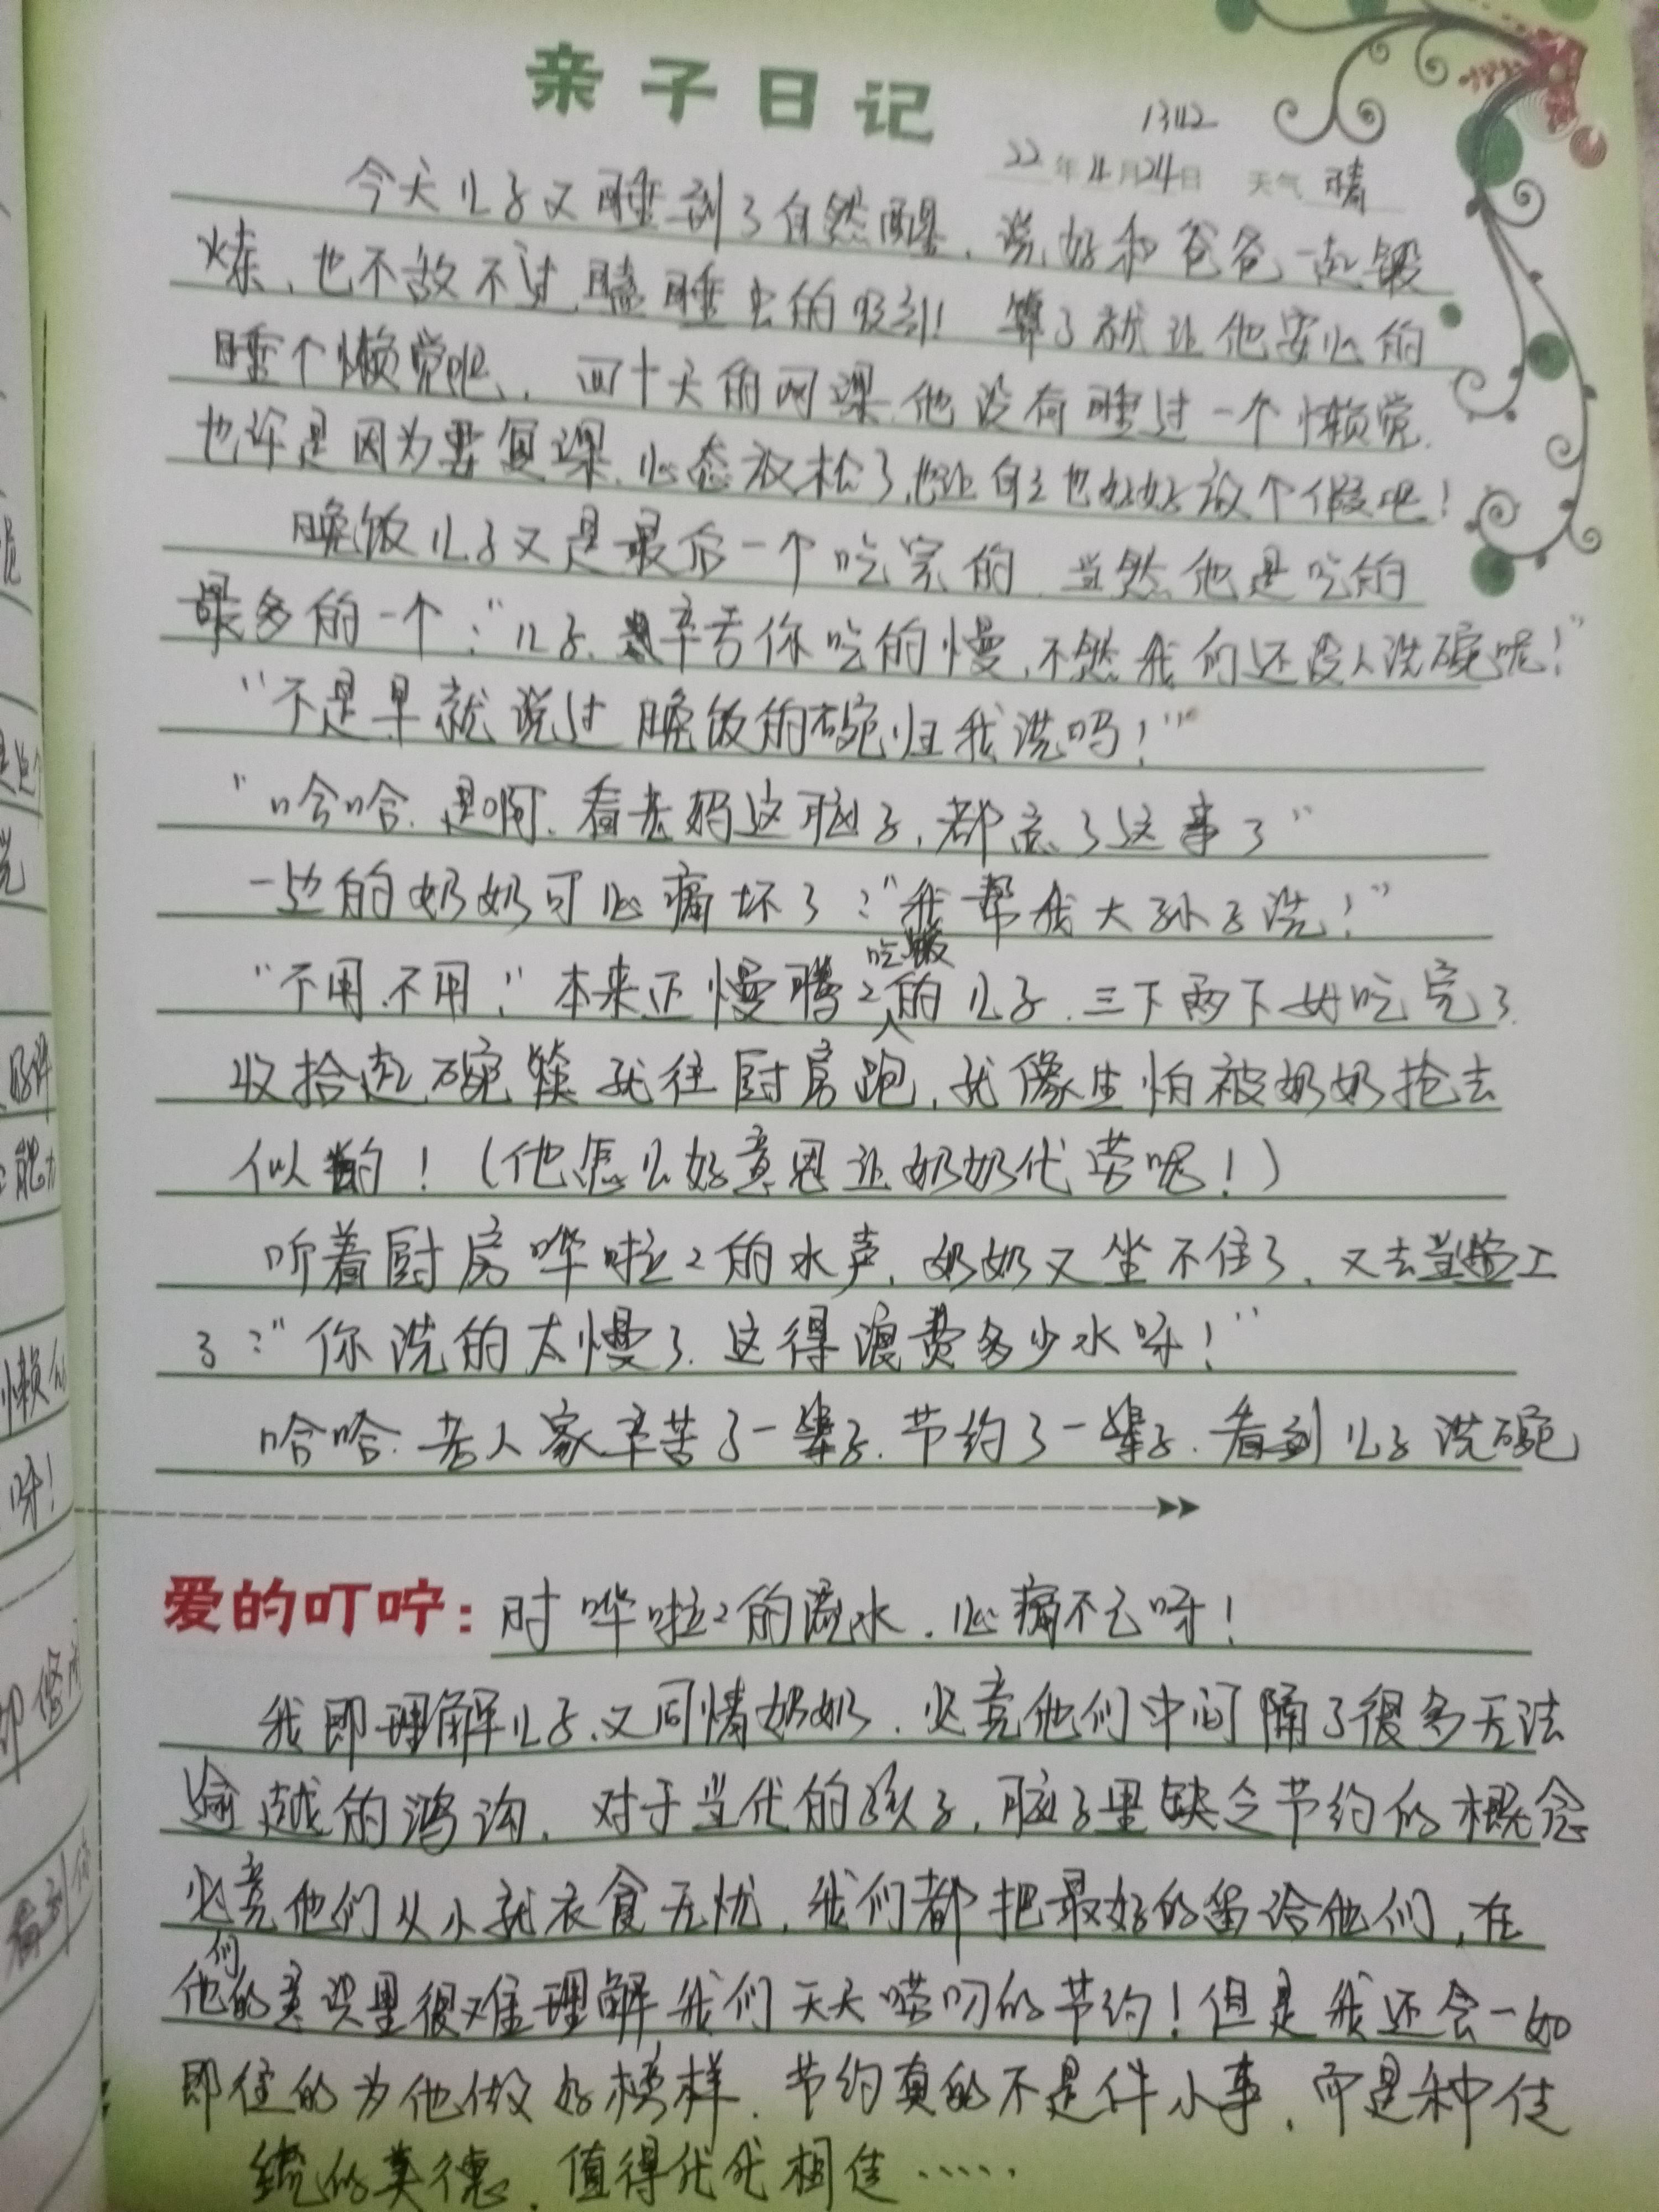 亲子日记
1342
22年4月24日 天气 晴
今天儿子又睡到了自然醒，说好和爸爸一起锻
炼，也不敌不过瞌睡虫的吸引！算了就让他安心的
睡个懒觉吧，四十天的网课，他没有睡过一个懒觉，
也许是因为要复课，心态放松了，让自己也好好放个假吧！
晚饭儿子又是最后一个吃完的，当然他是吃的
最多的一个："儿子，辛苦你吃的慢，不然我们还没人洗碗呢！"
"不是早就说过晚饭的碗归我洗吗！"
"哈哈，是啊，看老妈这脑子，都忘了这事了"
一边的奶奶可心痛坏了："我帮我大孙子洗！"
"不用，不用！"本来还慢腾々吃饭的儿子，三下两下好吃完了
收拾起碗筷就往厨房跑，就像生怕被奶奶抢去
似的！（他怎么好意思让奶奶代劳呢！）
听着厨房哗啦々的水声，奶奶又坐不住了，又去当监工
了："你洗的太慢了，这得浪费多少水呀！"
哈哈，老人家辛苦了一辈子，节约了一辈子，看到儿子洗碗
爱的叮咛：时哗啦々的流水，心痛不已呀！
我即理解儿子，又同情奶奶，必竟他们中间隔了很多无法
逾越的鸿沟，对于当代的孩子，脑子里缺乏节约的概念
必竟他们从小就衣食无忧，我们都把最好的留给他们，在
他们的意识里很难理解我们天天唠叨的节约！但是我还会一如
即往的为他做好榜样，节约真的不是件小事，而是种传
统的美德，值得代代相传……